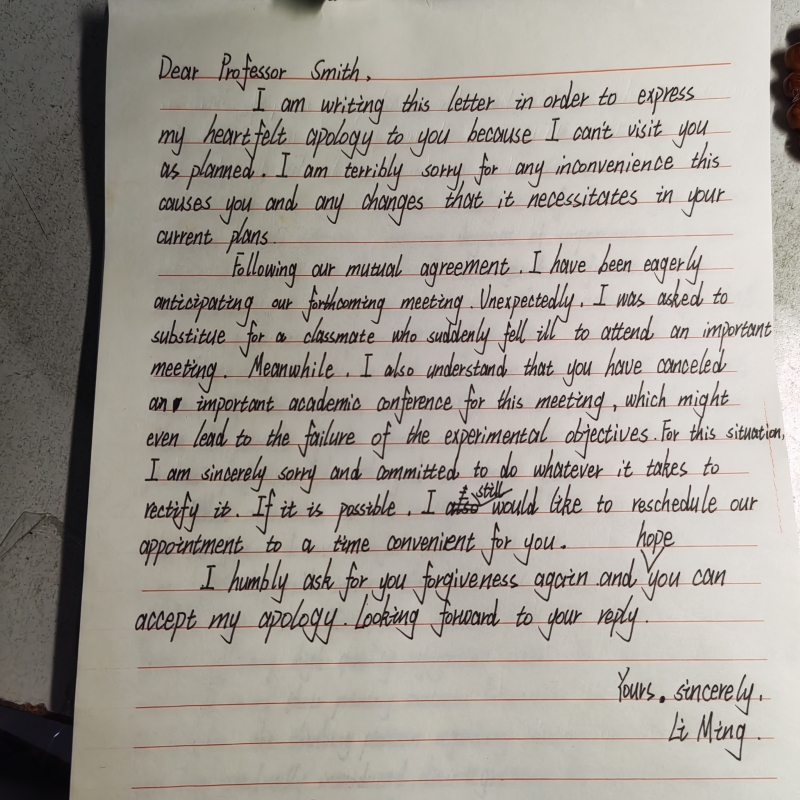 Dear Professor Smith,
I am writing this letter in order to express
my heartfelt apology to you because I can't visit you
as planned. I am terribly sorry for any inconvenience this
causes you and any changes that it necessitates in your
current plans.
Following our mutual agreement, I have been eagerly
anticipating our forthcoming meeting. Unexpectedly, I was asked to
substitue for a classmate who suddenly fell ill to attend an important
meeting. Meanwhile, I also understand that you have canceled
an important academic conference for this meeting, which might
even lead to the failure of the experimental objectives. For this situation,
I am sincerely sorry and committed to do whatever it takes to
rectify it. If it is possible, I still would like to reschedule our
appointment to a time convenient for you.
I humbly ask for you forgiveness again and hope you can
accept my apology. Looking forward to your reply.
Yours. sincerely,
Li Ming.